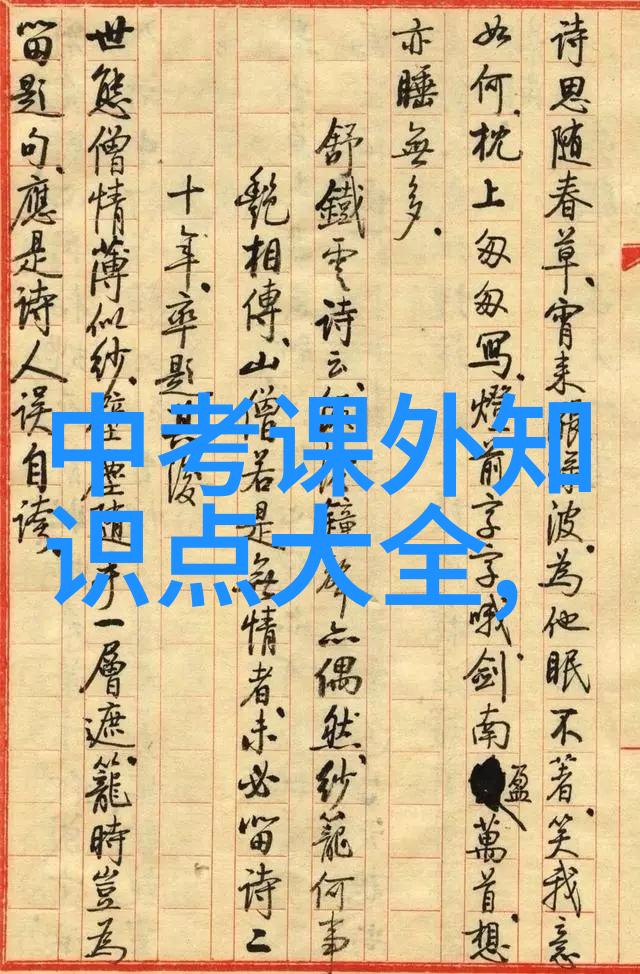 诗思随春草、宵来波、为他眠不著、笑我意
如何、枕上匆匆写、燈前字字哦、剑南盈萬首、想
亦睡無多、
舒鐵雲诗云、鐘亦偶然、纱籠何事
艷相傳、山僧若是無情者、未必畱诗二
十年、率题其後
世態僧情薄似纱、壁塵随手一層遮、籠時豈為
畱题句、應是诗人误自誇、
中考课外知
识点大全,